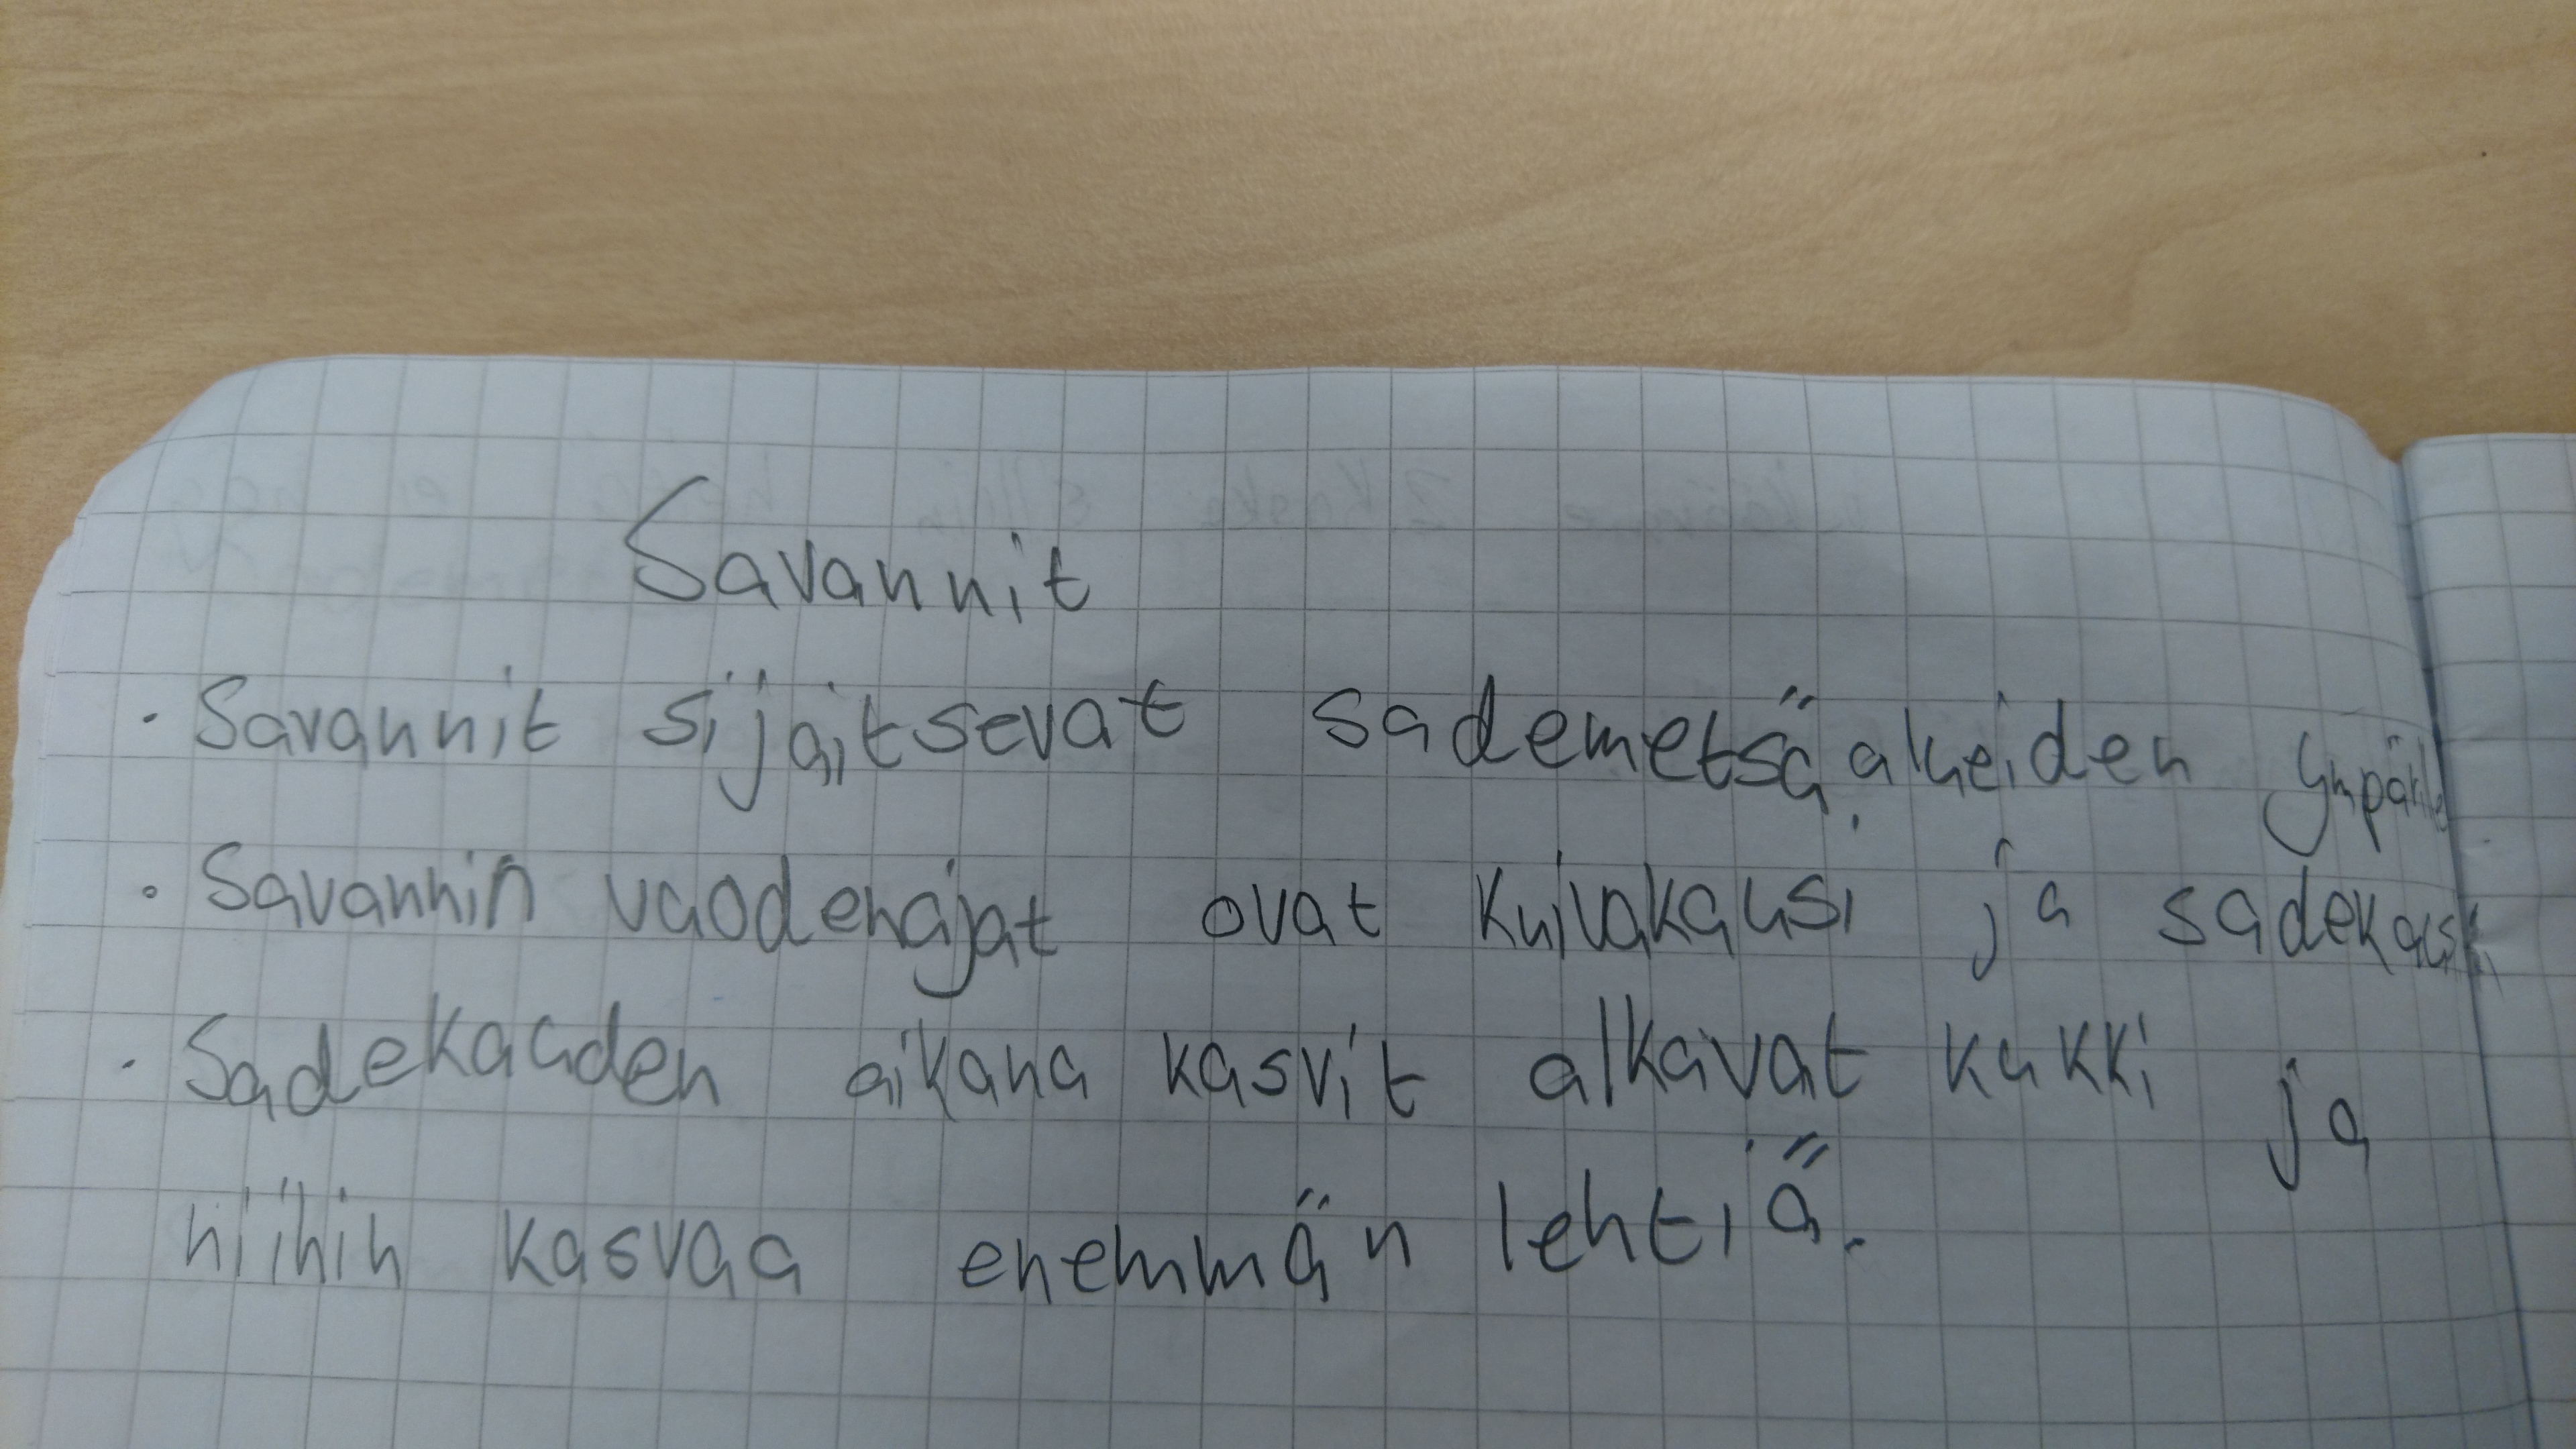 Savannit
· Savannit sijaitsevat sademetsä alueiden ympäri
· Savannin vuodenajat ovat kuivakausi ja sadekausi
· Sadekauden aikana kasvit alkavat kukki ja
niihin kasvaa enemmän lehtiä.